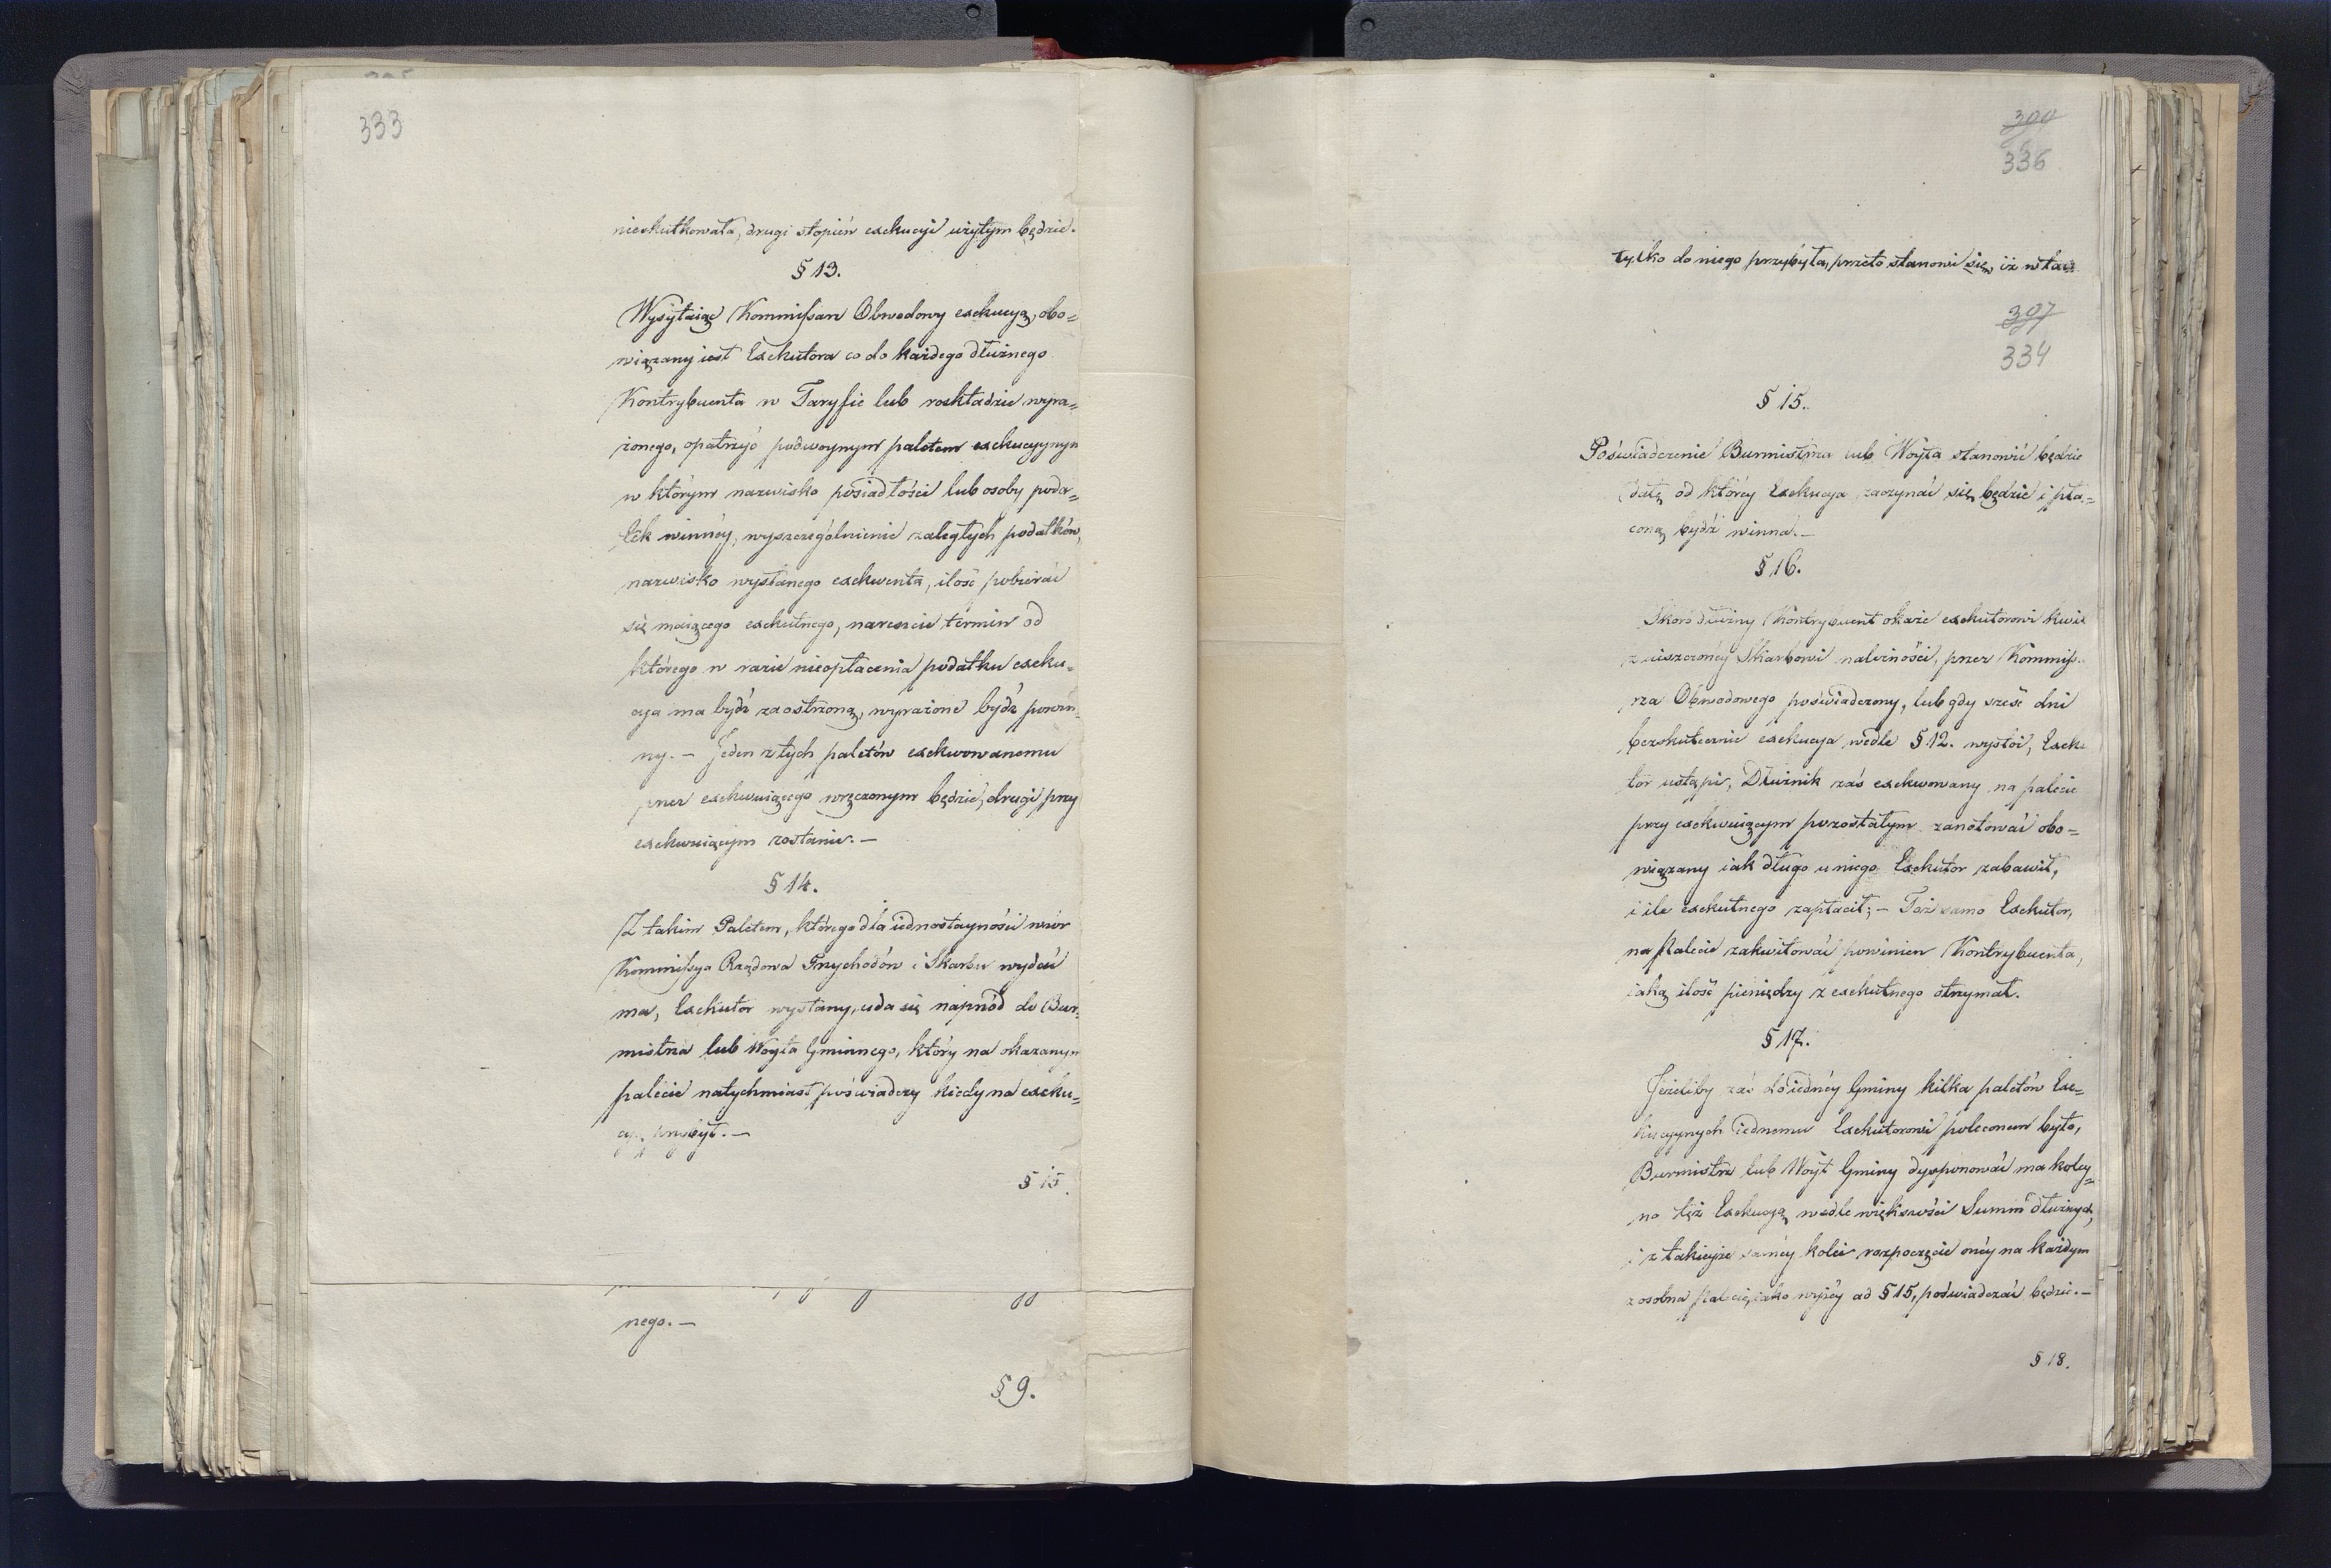 333
nieskutkowała, drugi stopień exekucyi użytym będzie.
§ 13.
Wysyłaiąc Kommissarz Obwodowy exekucyą, obo=
wiązany iest Exekutora co do każdego dłużnego
Kontrybuenta w Taryfie lub rozkładzie wyra=
żonego, opatrzyć podwoynym paletem exekucyynym
w którym nazwisko posiadłości lub osoby poda=
tek winnéy, wyszczególnienie zaległych podatków,
nazwisko wysłanego exekwenta, ilość pobierać
się maiącego exekutnego, nareszcie termin od
którego w razie nieopłacenia podatku exeku=
cya ma bydź zaostrzoną, wyrażone bydź powin
ny. — Jeden z tych paletów exekwowanemu
przez exekwuiącego wręczonym będzie, drugi przy
exekwuiącym zostanie. —
§ 14.
Z takim Paletem, którego dla iednostayności wzór
Kommissya Rządowa Przychodów i Skarbu wydać
ma, Exekutor wysłany, uda się naprzód do Bur=
mistrza lub Woyta Gminnego, który na okazanym
palecie natychmiast poświadczy kiedy na exeku=
przybył. —
§ 15.
nego. —
§ 9.
300
336
tylko do niego przybyła, przeto stanowi się, iż
307
334
§ 15.
Poświadczenie Burmistrza lub Woyta stanowić będzie
datę od któréy Exekucya zaczynać się będzie i pła=
coną bydź winna. —
§ 16.
Skoro dłużny Kontrybuent okaże exekutorowi kwit
z uiszczonéy Skarbowi należności, przez Kommiss
rza Obwodowego poświadczony, lub gdy sześć dni
bezskutecznie exekucya wedle § 12. wystoi, Exeku
tor ustąpi, Dłużnik zaś exekwowany na palecie
przy exekwuiącym pozostałym zanotować obo=
wiązany iak długo u niego Exekutor zabawił,
i ile exekutnego zapłacił; — Toż samo Exekutor,
na Palecie zakwitować powinien Kontrybuenta,
iaką ilość pieniędzy z exekutnego otrzymał.
§ 17.
Jeżeliby zaś do iednéy Gminy kilka paletów Exe=
kucyynych iednemu Exekutorowi poleconem było,
Burmistrz lub Woyt Gminy dysponować ma koley=
no też Exekucyą wedle większości Summ dłużnych,
i z takieyże saméy kolei rozpoczęcie onéy na każdym
z osobna Palecie, iako wyżéy ad § 15, poświadczać będzie. —
§ 18.